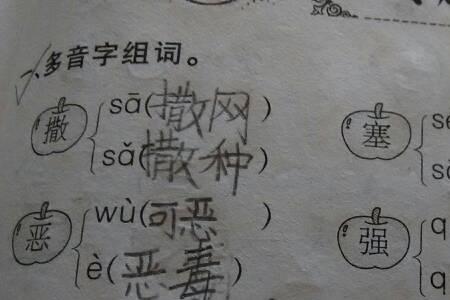 一、多音字组词。
撒 sā(撒网)
sǎ(撒种)
塞 s
s
恶 wù(可恶)
è(恶毒)
强 q
q